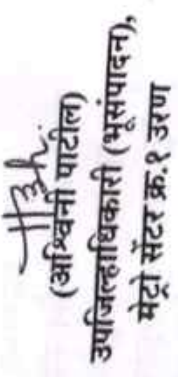 (अश्विनी पाटील)
उपजिल्हाधिकारी (भूसंपादन),
मेट्रो सेंटर क्र.१ उरण